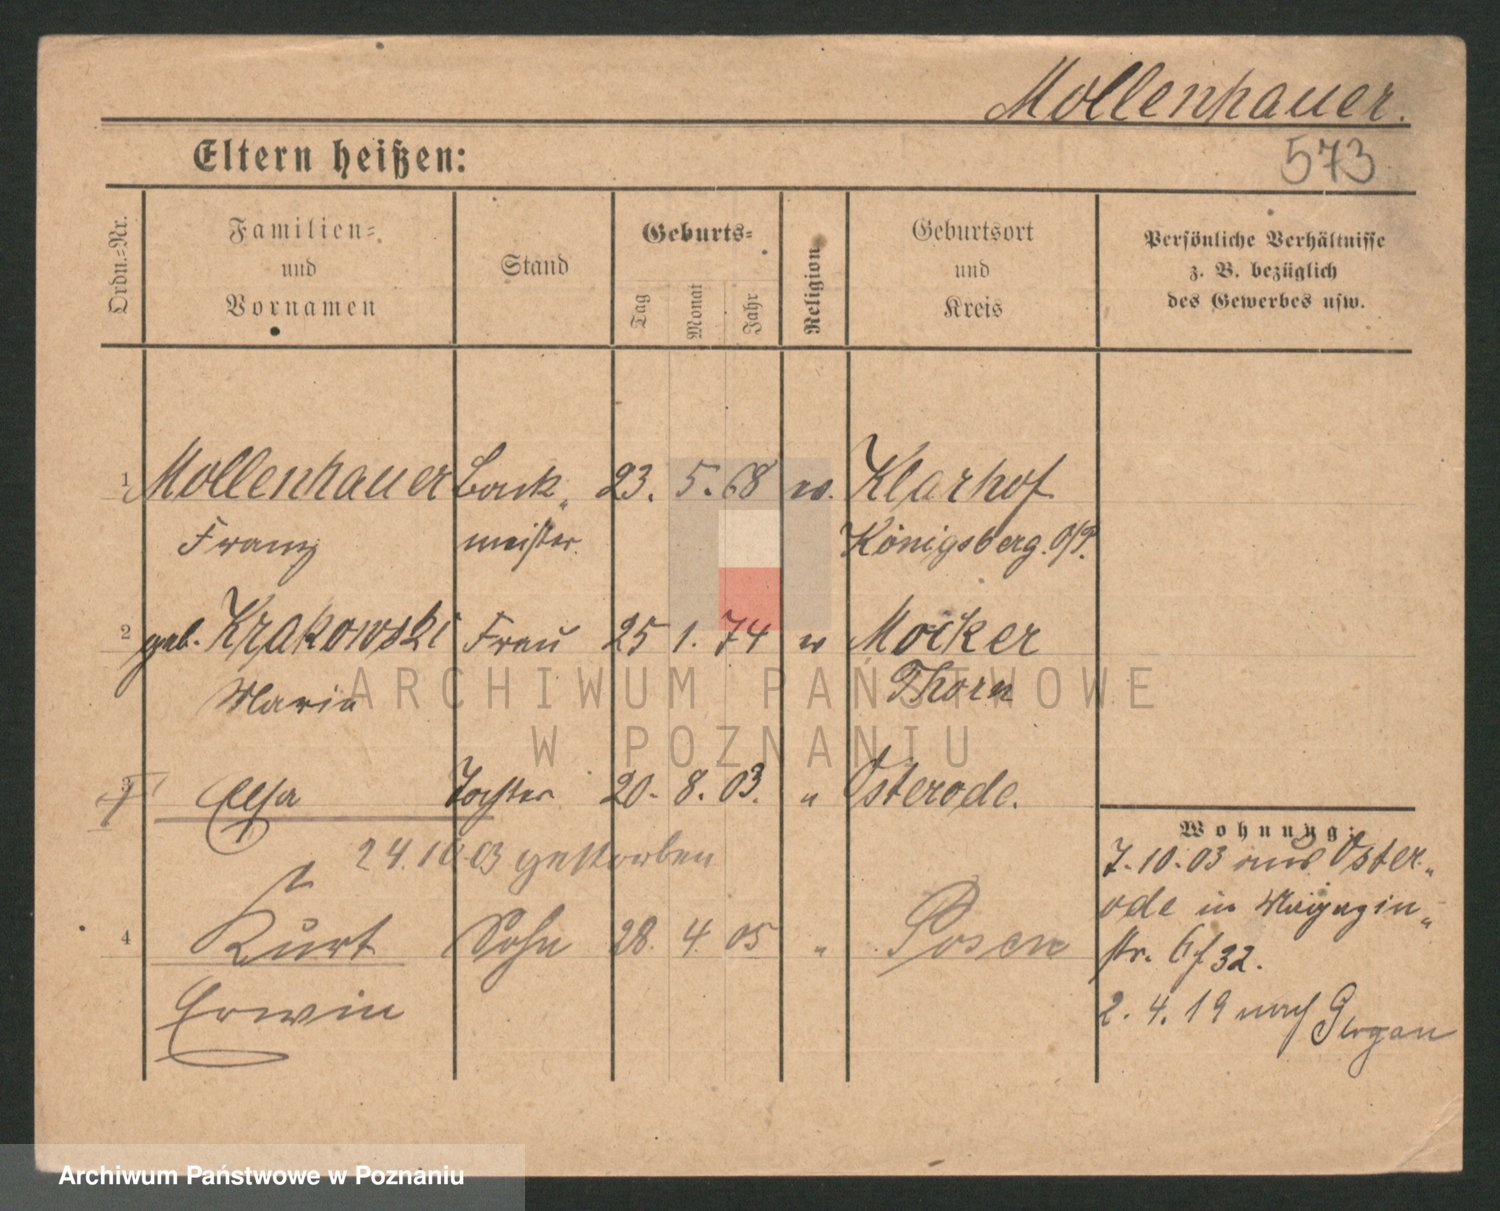 Mollenhauer.
Eltern heißen:
573
Ordn.-Nr.
Familien-
und
Vornamen
Stand
Geburts-
Tag
Monat
Jahr
Religion
Geburtsort
und
Kreis
Persönliche Verhältnisse
z. B. bezüglich
des Gewerbes usw.
1 Mollenhauer Back- 23. 5. 68 ev. Klarhof
Franz meister. Königsberg. O/P.
2 geb. Krakowski Frau 25 1. 74 Mocker
Maria Thorn
3 Elsa Tochter 20. 8. 03. " Osterode.
24.10.03 gestorben
4 Kurt Sohn 28. 4. 05 " Posen
Erwin
Wohnung:
7.10.03 aus Oster-
ode in Magazin-
str. 32.
2. 4. 19 nach
ARCHIWUM PAŃSTWOWE
W POZNANIU
Archiwum Państwowe w Poznaniu